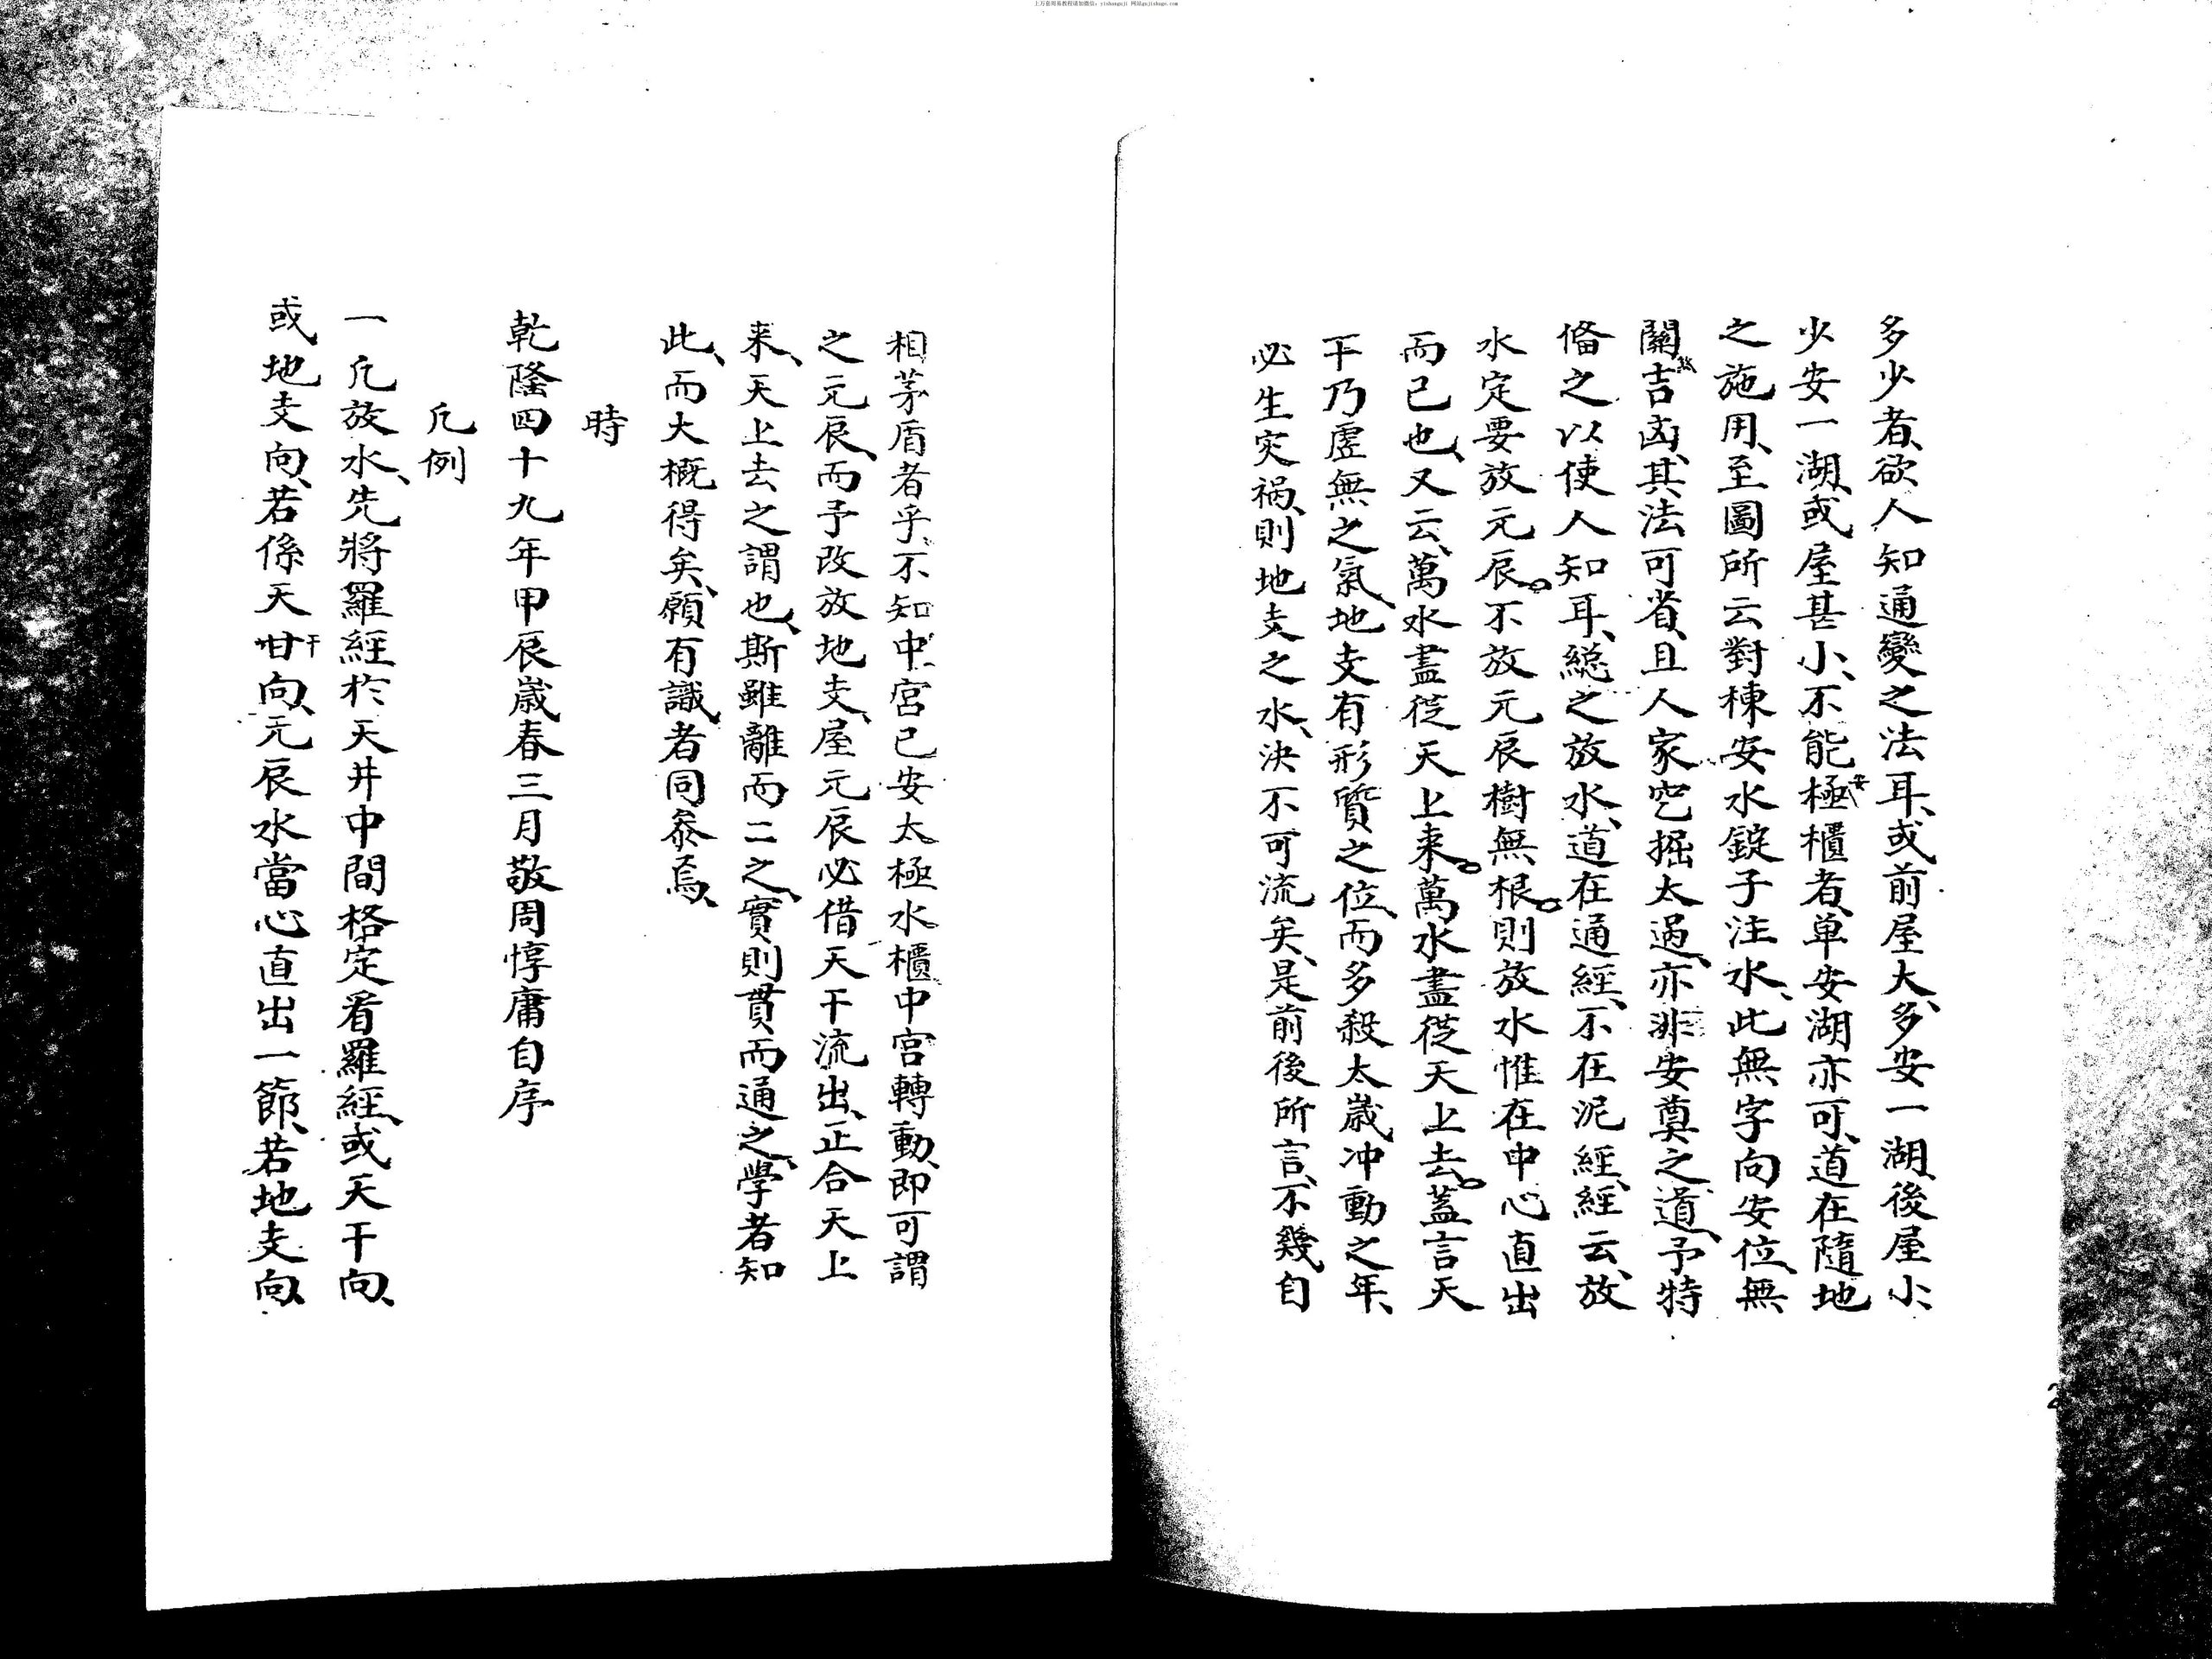 上万套周易教程请加微信：yishanguji 网站gujishage.com
多少者、欲人知通變之法耳、或前屋大、多安一湖、後屋小、
少安一湖、或屋甚小、不能安極櫃者、单安湖亦可、道在隨地
之施用、至圖所云對棟安水錠子注水、此無字向安位、無
關吉凶、其法可省、且人家穵掘太過、亦非安奠之道、予特
俻之以使人知耳、総之放水、道在通經、不在泥經、經云、放
水定要放元辰。不放元辰樹無根。則放水惟在中心直出
而已也、又云、萬水盡從天上来。萬水盡從天上去。蓋言天
干乃虛無之氣、地支有形質之位、而多殺太歲冲動之年、
必生灾禍、則地支之水、決不可流矣、是前後所言、不幾自
相茅盾者乎、不知中宫已安太極水櫃、中宫轉動、即可謂
之元辰、而予改放地支、屋元辰必借天干流出、正合天上
来、天上去之謂也、斯雖離而二之、實則貫而通之、學者知
此、而大概得矣、願有識者同叅焉、
時
乾隆四十九年甲辰歲春三月敬周惇庸自序
凡例
一凡放水、先將羅經於天井中間格定看羅經、或天干向、
或地支向、若係天甘干向、元辰水當心直出一節、若地支向、
2